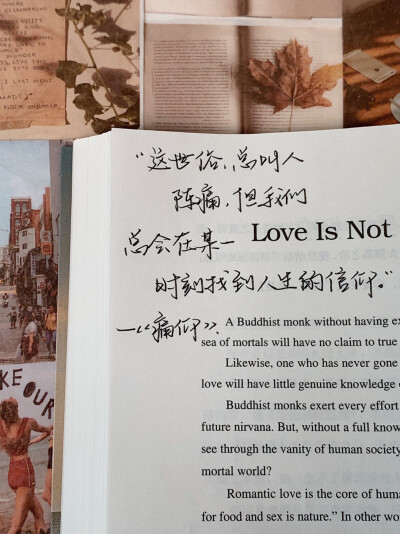 I LAST WENT
"这世俗，总叫人
阵痛，但我们
总会在某一
时刻找到人生的信仰。"
—《痛仰》
Love Is Not
A Buddhist monk without having ex
sea of mortals will have no claim to true
Likewise, one who has never gone
love will have little genuine knowledge o
Buddhist monks exert every effort
future nirvana. But, without a full know
see through the vanity of human society
mortal world?
Romantic love is the core of huma
for food and sex is nature.” In other wo
KE OUR